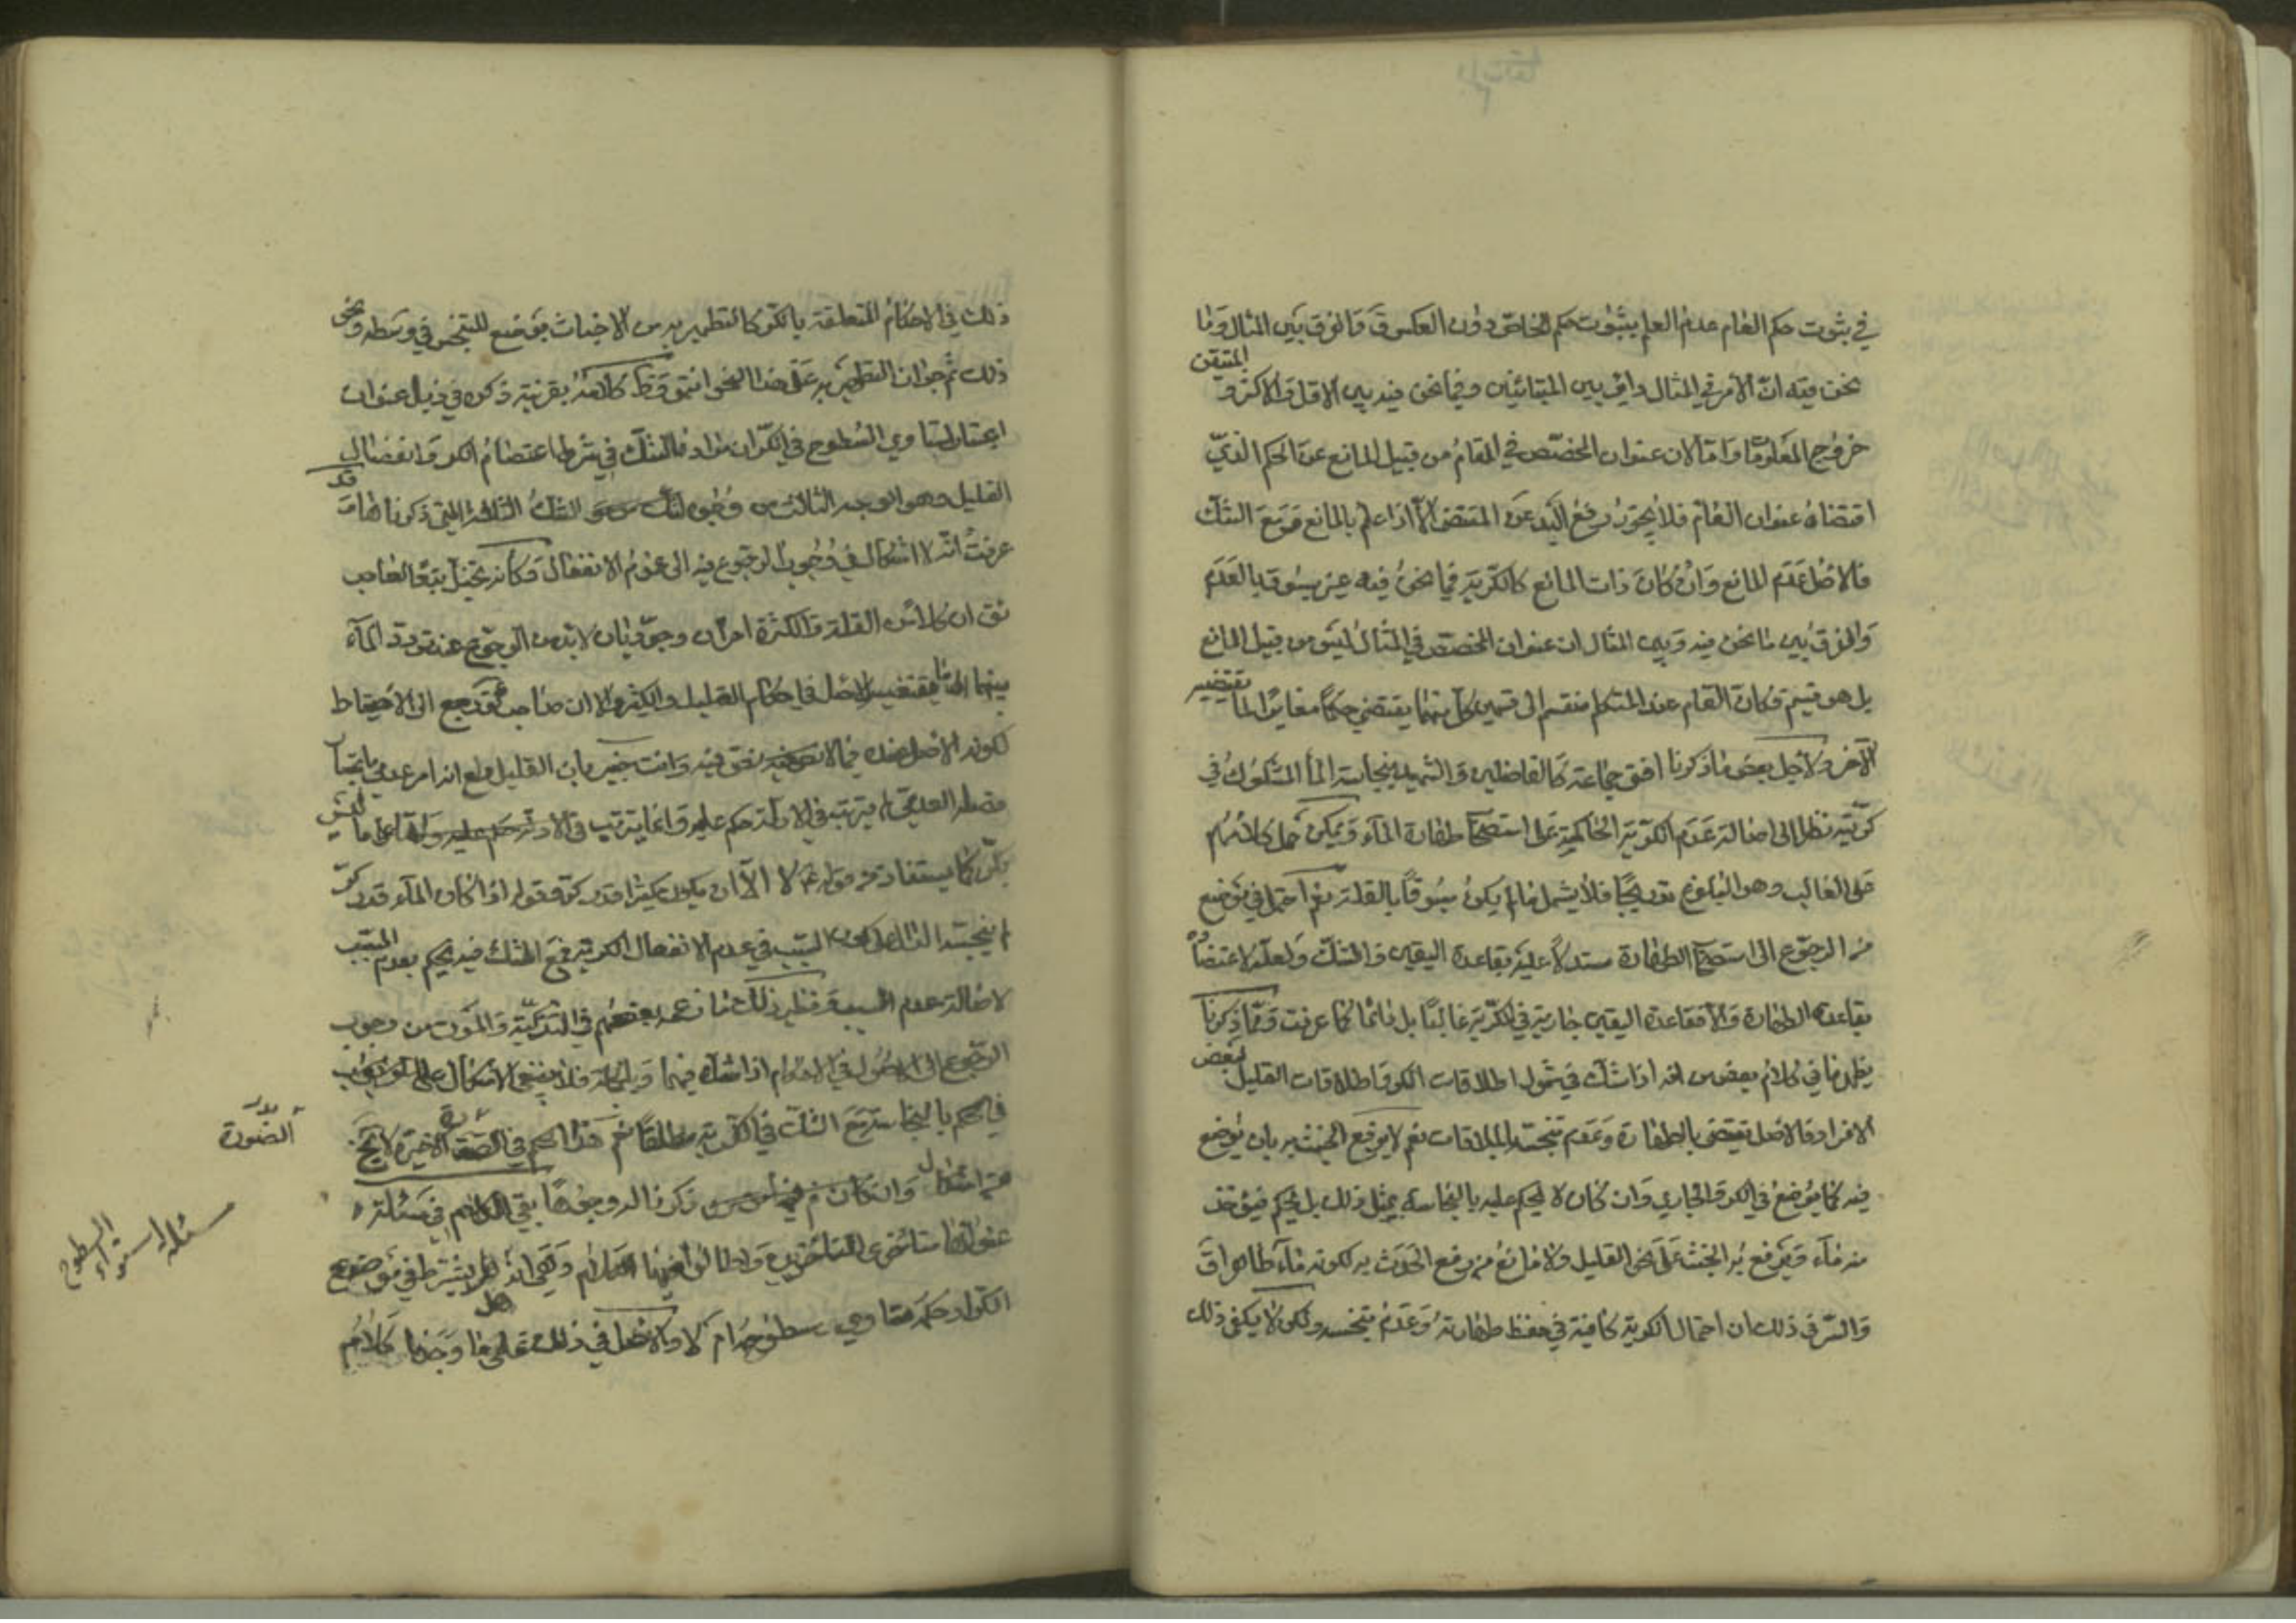 في ثبوت حكم العام عدم العلم بثبوت حكم الخاص دون العكس والفرق بين المثال وما
نحن فيه ان الأمر في المثال دائر بين المتبائنين وفيما نحن فيه بين الاقل والاكثر و المتيقن
خروج المعلوم واما لان عنوان المخصص في المقام من قبيل المانع عن الحكم الذي
اقتضاه عنوان العام فلا يجوز رفع اليد عن المقتضى الا اذا علم بالمانع ومع الشك
فالاصل عدم المانع وان كان ذات المانع كالكرية فيما نحن فيه غير مسبوقة بالعدم
والفرق بين ما نحن فيه وبين المثال ان عنوان المخصص في المثال ليس من قبيل المانع
بل هو قسيم وكان العام عند المتكلم منقسم الى قسمين كل منهما يقتضي حكما مغايرا لما يقتضيه
الآخر ولاجل بعض ما ذكرنا افتى جماعة كالفاضلين والشهيد بنجاسة الماء المشكوك في
كريته نظرا الى اصالة عدم الكرية الحاكمة على استصحاب طهارة الماء ويمكن حمل كلامهم
على الغالب وهو البلوغ تدريجا فلا يشمل ما لم يكن مسبوقا بالقلة نعم احتمل في موضع
من الرجوع الى استصحاب الطهارة مستدلا عليه بقاعدة اليقين والشك ولعله لاعتضاده
بقاعدة الطهارة والا فقاعدة اليقين جارية في الكرية غالبا بل دائما كما عرفت ومما ذكرنا
يظهر ما في كلام بعض من انه اذا شك في شمول اطلاقات الكر واطلاقات القليل لبعض
الافراد فالاصل يقتضى بالطهارة وعدم تنجسه بالملاقات نعم لا يرفع الخبث به بان يوضع
فيه كما يوضع في الكر والجاري وان كان لا يحكم عليه بالنجاسة بمثل ذلك بل يحكم فيؤخذ
منه ماء ويرفع به الخبث على نحو القليل ولا مانع من رفع الحدث به لكونه ماء طاهرا ق
والسر في ذلك ان احتمال الكرية كافية في حفظ طهارته وعدم تنجسه ولكن لا يكفى ذلك
ذلك في الاحكام المتعلقة بالكر كالتطهير به من الاخباث بوضع المتنجس في وسطه ونحو
ذلك ثم جواز التطهير به على هذا النحو انتهى كلامه بقرينة ذكره في ذيل عنوان
اعتبار تساوي السطوح في الكر ان مراده الشك في شرطية اعتصام الكر وانفعال
القليل وهو الوجه الثالث من وجوه الشك الثلثة التي ذكرناها وقد
عرفت انه لا اشكال في وجوب الرجوع فيه الى عموم الانفعال وكأنه تخيل تبعا لصاحب
ئق ان كلا من القلة والكثرة امران وجوديان لا بد من الرجوع عند تردد الماء
بينهما الى ما يقتضيه الاصل في احكام القليل والكثير الا ان صاحب ئق رجع الى الاحتياط
لكونه الاصل عنده فيما لا نص فيه وانت خبير بان القليل مع انه امر عدمي باعتبار
فصله العدمي لم يترتب في الادلة حكم عليه وانما يترتب في الادلة على ما ليس
بكر كما يستفاد من قوله ع لا الا ان يكون كثيرا قدر كر وقوله اذا كان الماء قدر كر
لم ينجسه السبب في عدم الانفعال الكرية فمع الشك فيه يحكم بعدم المسبب
لاصالة عدم السبب ونظير ذلك ما زعمه بعضهم في التذكية والموت من وجوب
الرجوع الى الاصول في اذا شك فيهما وبالجملة فلا ينبغي الاشكال
في الحكم بالنجاسة مع الشك في الكرية مطلقا نعم هذا الحكم في الصورة الاخيرة لا يخ
من اشكال وان كان ذكرنا له وجها بقي الكلام في مسئلة
عنوانها متأخرى المتأخرين واطالوا فيها الكلام وهي انه هل يشترط في موضوع
الكر او حكمه تساوي سطوحه ام لا والاصل في ذلك على ما وجدنا كلام
بدل
الصورة
مسئله استواء السطوح